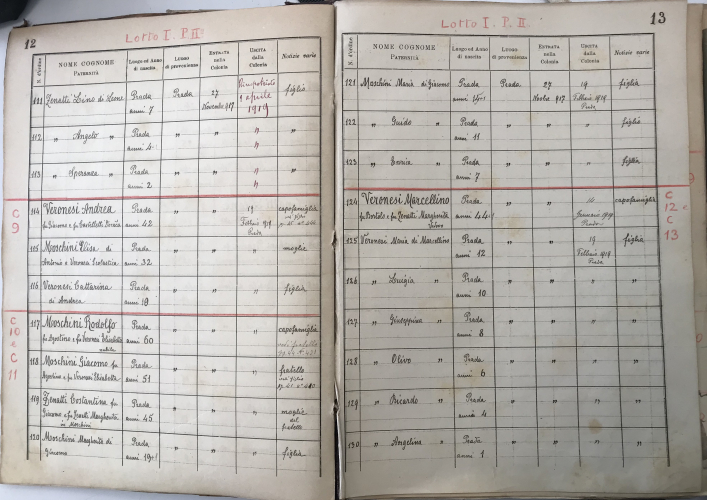 12
Lotto I. P. II°
N. d'ordine
NOME COGNOME
PATERNITÀ
Luogo ed Anno
di nascita
Luogo
di provenienza
ENTRATA
nella
Colonia
USCITA
dalla
Colonia
Notizie varie
111 Zenatti Lino di Leone Prada Prada 27 Rimpatriato figlio
anni 7 Novembre 917 9 aprile
1919
112 " Angelo " Prada " " " "
anni 4
113 " Speranza " Prada " " " "
anni 2 "
C
9
114 Veronesi Andrea Prada " " 19 capofamiglia
fu Giacomo e fu anni 42 Febbraio 1919
Prada
115 Moschini Elisa di Prada " " " moglie
Antonio e Veronesi Scolastica anni 32
116 Veronesi Cattarina Prada " " " figlia
di Andrea anni
C
10
e
C
11
117 Moschini Rodolfo Prada " " " capofamiglia
fu Agostino e fu Veronesi Elisabetta anni 60
118 Moschini Giacomo fu Prada " " " fratello
Agostino e fu Veronesi Elisabetta anni 51
119 Zenatti Costantina fu Prada " " " moglie
Giacomo e fu Zenatti Margherita anni 45 del
in Moschini fratello
120 Moschini Margherita di Prada " " " figlia
Giacomo anni
13
Lotto I. P. II.
N. d'ordine
NOME COGNOME
PATERNITÀ
Luogo ed Anno
di nascita
Luogo
di provenienza
ENTRATA
nella
Colonia
USCITA
dalla
Colonia
Notizie varie
121 Moschini Maria di Giacomo Prada Prada 27 19 figlia
anni 917 Febbraio 1919
Prada
122 " Guido " Prada " " " figlio
anni 11
123 " " Prada " " " figlia
anni 7
124 Veronesi Marcellino Prada " " capofamiglia
fu Bortolo e fu Zenatti Margherita anni 44 Gennaio 1919
C
12 e
C
13
125 Veronesi Maria di Marcellino Prada " " 19 figlia
anni 12 Febbraio 1919
Prada
126 " Luigia " Prada " " " "
anni 10
127 " Giuseppina " Prada " " " "
anni 8
128 " Olivo " Prada " " " "
anni 6
129 " Ricardo " Prada " " " "
anni 4
130 " Angelina " Prada " " " "
anni 1